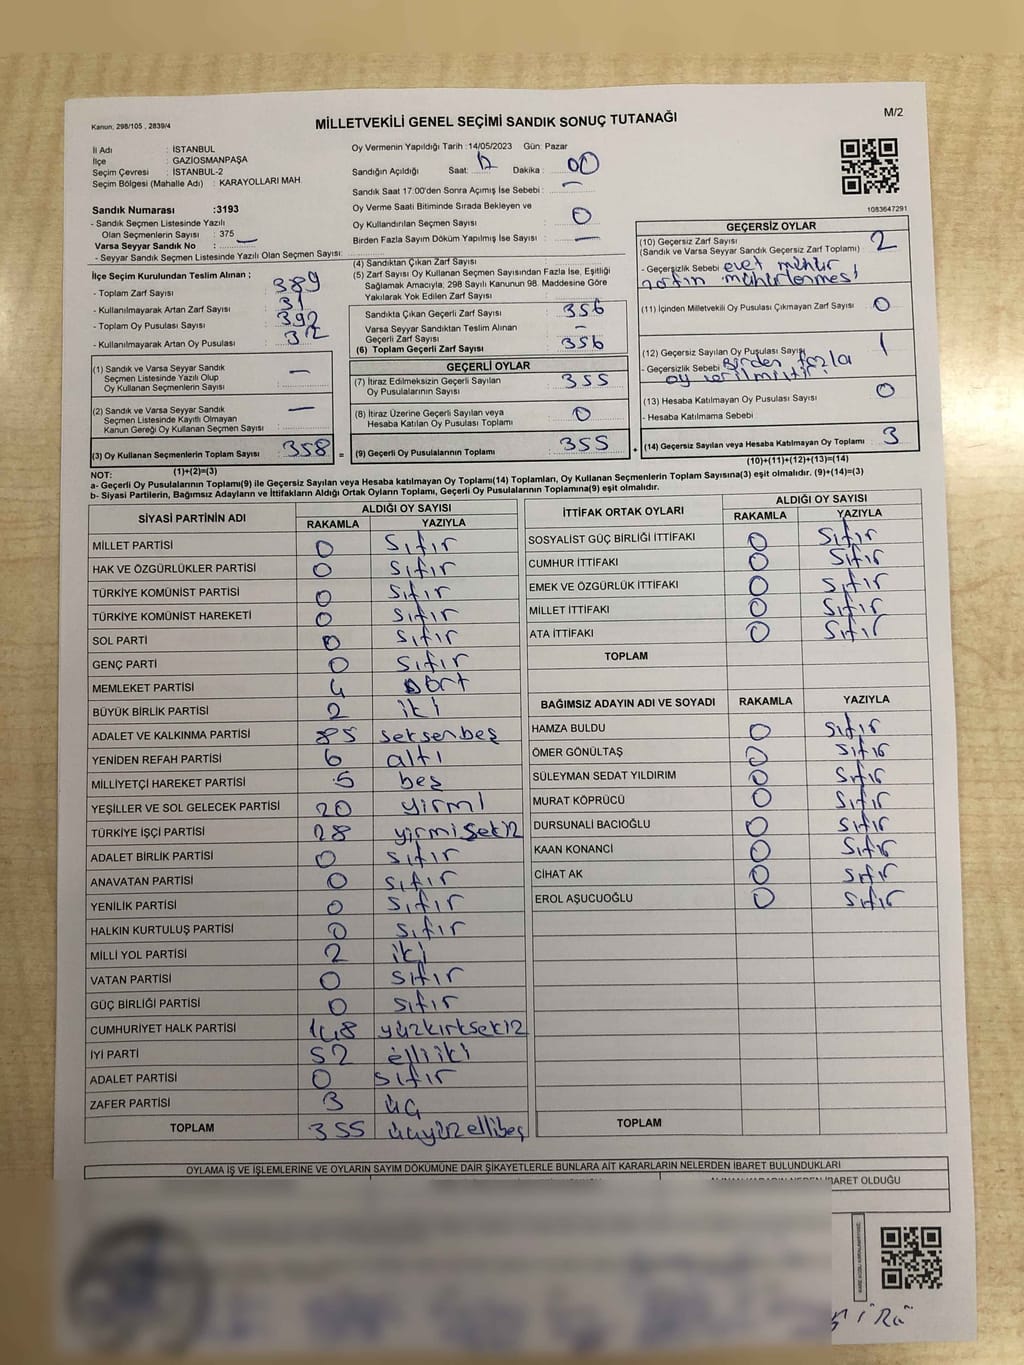 Kanun; 298/105 , 2839/4
MİLLETVEKİLİ GENEL SEÇİMİ SANDIK SONUÇ TUTANAĞI
M/2
İl Adı : İSTANBUL
İlçe : GAZİOSMANPAŞA
Seçim Çevresi : İSTANBUL-2
Seçim Bölgesi (Mahalle Adı) : KARAYOLLARI MAH.
Sandık Numarası :3193
- Sandık Seçmen Listesinde Yazılı
Olan Seçmenlerin Sayısı : 375
Varsa Seyyar Sandık No : —
- Seyyar Sandık Seçmen Listesinde Yazılı Olan Seçmen Sayısı:
Oy Vermenin Yapıldığı Tarih :14/05/2023 Gün: Pazar
Sandığın Açıldığı Saat: 17 Dakika : 00
Sandık Saat 17:00'den Sonra Açımış İse Sebebi : —
Oy Verme Saati Bitiminde Sırada Bekleyen ve
Oy Kullandırılan Seçmen Sayısı : 0
Birden Fazla Sayım Döküm Yapılmış İse Sayısı : —
1083647291
İlçe Seçim Kurulundan Teslim Alınan ;
- Toplam Zarf Sayısı : 389
- Kullanılmayarak Artan Zarf Sayısı : 31
- Toplam Oy Pusulası Sayısı : 392
- Kullanılmayarak Artan Oy Pusulası : 32
(1) Sandık ve Varsa Seyyar Sandık
Seçmen Listesinde Yazılı Olup
Oy Kullanan Seçmenlerin Sayısı : —
(2) Sandık ve Varsa Seyyar Sandık
Seçmen Listesinde Kayıtlı Olmayan
Kanun Gereği Oy Kullanan Seçmen Sayısı : —
(3) Oy Kullanan Seçmenlerin Toplam Sayısı : 358
(1)+(2)=(3)
(4) Sandıktan Çıkan Zarf Sayısı :
(5) Zarf Sayısı Oy Kullanan Seçmen Sayısından Fazla İse, Eşitliği
Sağlamak Amacıyla, 298 Sayılı Kanunun 98. Maddesine Göre
Yakılarak Yok Edilen Zarf Sayısı :
Sandıkta Çıkan Geçerli Zarf Sayısı : 356
Varsa Seyyar Sandıktan Teslim Alınan
Geçerli Zarf Sayısı : —
(6) Toplam Geçerli Zarf Sayısı : 356
GEÇERLİ OYLAR
(7) İtiraz Edilmeksizin Geçerli Sayılan
Oy Pusulalarının Toplamı : 355
(8) İtiraz Üzerine Geçerli Sayılan veya
Hesaba Katılan Oy Pusulası Toplamı : 0
= (9) Geçerli Oy Pusulalarının Toplamı : 355
GEÇERSİZ OYLAR
(10) Geçersiz Zarf Sayısı : 2
(Sandık ve Varsa Seyyar Sandık Geçersiz Zarf Toplamı)
- Geçersizlik Sebebi evet mühür
zarfın mühürlenmesi
(11) İçinden Milletvekili Oy Pusulası Çıkmayan Zarf Sayısı : 0
(12) Geçersiz Sayılan Oy Pusulası Sayısı : 1
- Geçersizlik Sebebi Birden fazla
oy verilmiştir
(13) Hesaba Katılmayan Oy Pusulası Sayısı : 0
- Hesaba Katılmama Sebebi
+ (14) Geçersiz Sayılan veya Hesaba Katılmayan Oy Toplamı : 3
(10)+(11)+(12)+(13)=(14)
NOT:
a- Geçerli Oy Pusulalarının Toplamı(9) ile Geçersiz Sayılan veya Hesaba katılmayan Oy Toplamı(14) Toplamları, Oy Kullanan Seçmenlerin Toplam Sayısına(3) eşit olmalıdır. (9)+(14)=(3)
b- Siyasi Partilerin, Bağımsız Adayların ve İttifakların Aldığı Ortak Oyların Toplamı, Geçerli Oy Pusulalarının Toplamına(9) eşit olmalıdır.
SİYASİ PARTİNİN ADI ALDIĞI OY SAYISI
RAKAMLA YAZIYLA
MİLLET PARTİSİ 0 sıfır
HAK VE ÖZGÜRLÜKLER PARTİSİ 0 sıfır
TÜRKİYE KOMÜNİST PARTİSİ 0 sıfır
TÜRKİYE KOMÜNİST HAREKETİ 0 sıfır
SOL PARTİ 0 sıfır
GENÇ PARTİ 0 sıfır
MEMLEKET PARTİSİ 4 Dört
BÜYÜK BİRLİK PARTİSİ 2 iki
ADALET VE KALKINMA PARTİSİ 85 seksenbeş
YENİDEN REFAH PARTİSİ 6 altı
MİLLİYETÇİ HAREKET PARTİSİ 5 beş
YEŞİLLER VE SOL GELECEK PARTİSİ 20 yirmi
TÜRKİYE İŞÇİ PARTİSİ 28 yirmisekiz
ADALET BİRLİK PARTİSİ 0 sıfır
ANAVATAN PARTİSİ 0 sıfır
YENİLİK PARTİSİ 0 sıfır
HALKIN KURTULUŞ PARTİSİ 0 sıfır
MİLLİ YOL PARTİSİ 2 iki
VATAN PARTİSİ 0 sıfır
GÜÇ BİRLİĞİ PARTİSİ 0 sıfır
CUMHURİYET HALK PARTİSİ 148 yüzkırksekiz
İYİ PARTİ 52 elliiki
ADALET PARTİSİ 0 sıfır
ZAFER PARTİSİ 3 üç
TOPLAM 355 üçyüzellibeş
İTTİFAK ORTAK OYLARI ALDIĞI OY SAYISI
RAKAMLA YAZIYLA
SOSYALİST GÜÇ BİRLİĞİ İTTİFAKI 0 sıfır
CUMHUR İTTİFAKI 0 sıfır
EMEK VE ÖZGÜRLÜK İTTİFAKI 0 sıfır
MİLLET İTTİFAKI 0 sıfır
ATA İTTİFAKI 0 sıfır
TOPLAM
BAĞIMSIZ ADAYIN ADI VE SOYADI RAKAMLA YAZIYLA
HAMZA BULDU 0 sıfır
ÖMER GÖNÜLTAŞ 0 sıfır
SÜLEYMAN SEDAT YILDIRIM 0 sıfır
MURAT KÖPRÜCÜ 0 sıfır
DURSUNALİ BACIOĞLU 0 sıfır
KAAN KONANCİ 0 sıfır
CİHAT AK 0 sıfır
EROL AŞUCUOĞLU 0 sıfır
TOPLAM
OYLAMA İŞ VE İŞLEMLERİNE VE OYLARIN SAYIM DÖKÜMÜNE DAİR ŞİKAYETLERLE BUNLARA AİT KARARLARIN NELERDEN İBARET BULUNDUKLARI
İBARET OLDUĞU